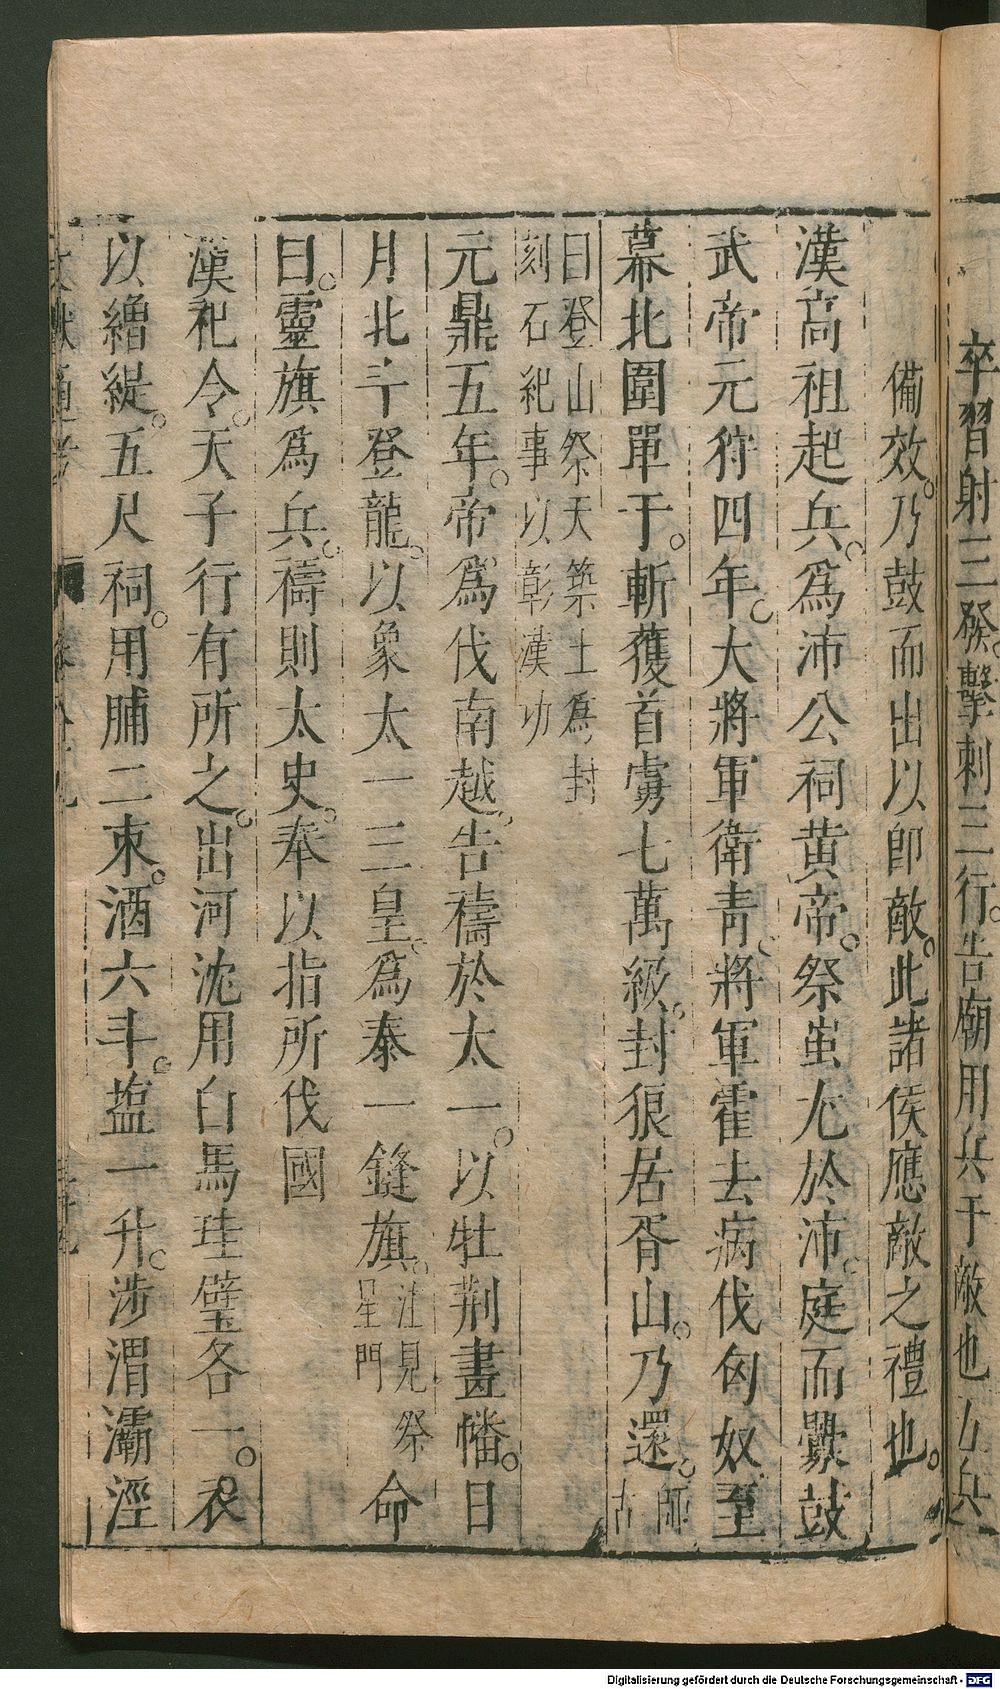 卒習射三發。擊刺三行。告廟用兵于敵也五兵
備效。乃鼓而出以即敵。此諸侯應敵之禮也。
漢高祖起兵。爲沛公祠黄帝。祭蚩尤於沛。庭而釁鼓
武帝元狩四年。大將軍衛青。將軍霍去病伐匈奴至
幕北圍單于。斬獲首虜七萬級。封狼居胥山。乃還。師古
曰登山祭天築土爲封
刻石紀事以彰漢功
元鼎五年。帝爲伐南越。告禱於太一。以牡荆畫幡。日
月北斗登龍。以象太一三皇。爲泰一鏠旗。注見祭星門命
曰。靈旗爲兵。禱則太史。奉以指所伐國
漢祀令。天子行有所之。出河沈用白馬珪璧各一。衣
以繒緹。五尺祠。用脯二束。酒六斗。塩一升。涉渭灞涇
文獻通考
Digitalisierung gefördert durch die Deutsche Forschungsgemeinschaft - DFG